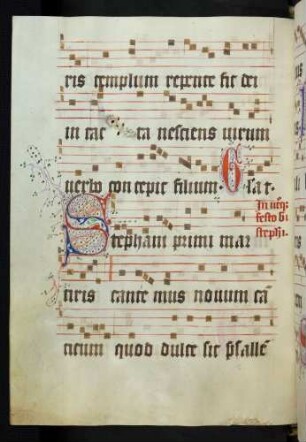 ris templum repente fit dei
in tac ta nesciens uirum
uerbo concepit filium. Glar.
In uig̃
festo bi
steph̃i.
Stephani primi mar
tiris cante mus nouum cã
ticum quod dulce sit psallẽ